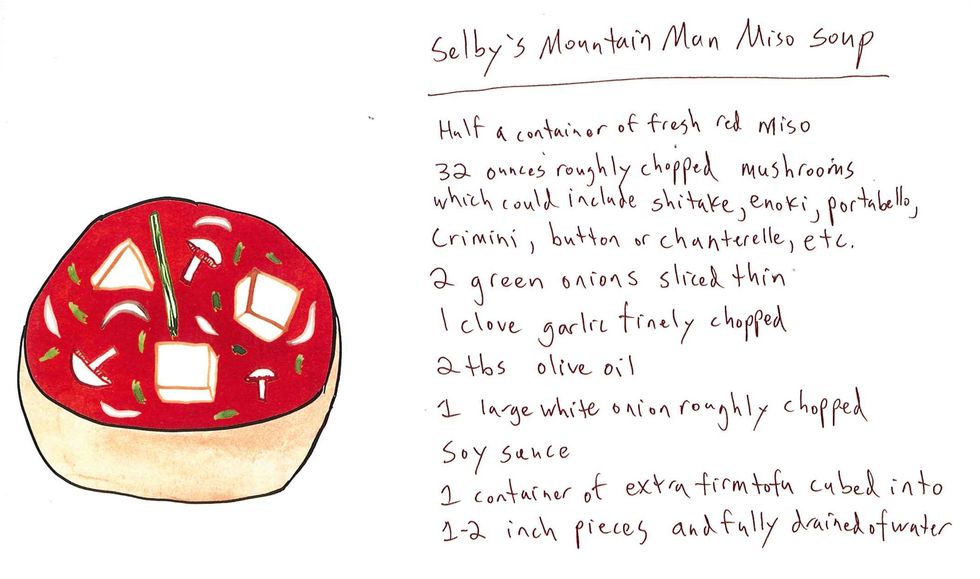 Selby's Mountain Man Miso Soup
Half a container of fresh red miso
32 ounces roughly chopped mushrooms
which could include shitake, enoki, portabello,
Crimini, button or chanterelle, etc.
2 green onions sliced thin
1 clove garlic finely chopped
2 tbs olive oil
1 large white onion roughly chopped
Soy sauce
1 container of extra firm tofu cubed into
1-2 inch pieces and fully drained of water